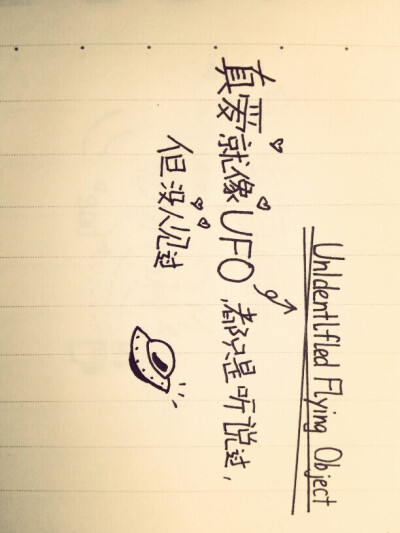 UnIdentIfIed Flying Object
真爱就像UFO,都只是听说过,
但没人见过